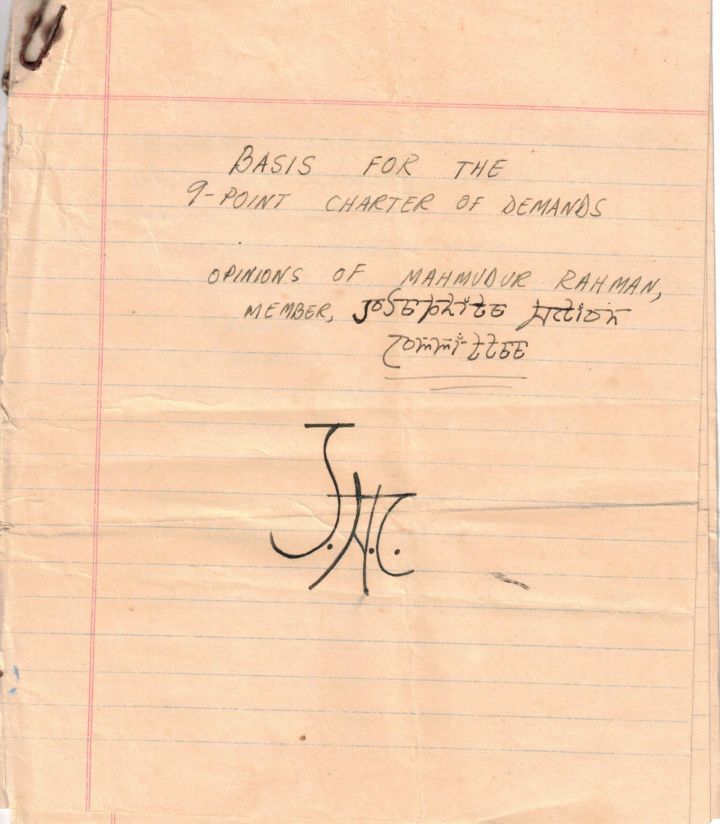 BASIS FOR THE
9-POINT CHARTER OF DEMANDS
OPINIONS OF MAHMUDUR RAHMAN,
MEMBER, Josephite Action
Committee
J.A.C.